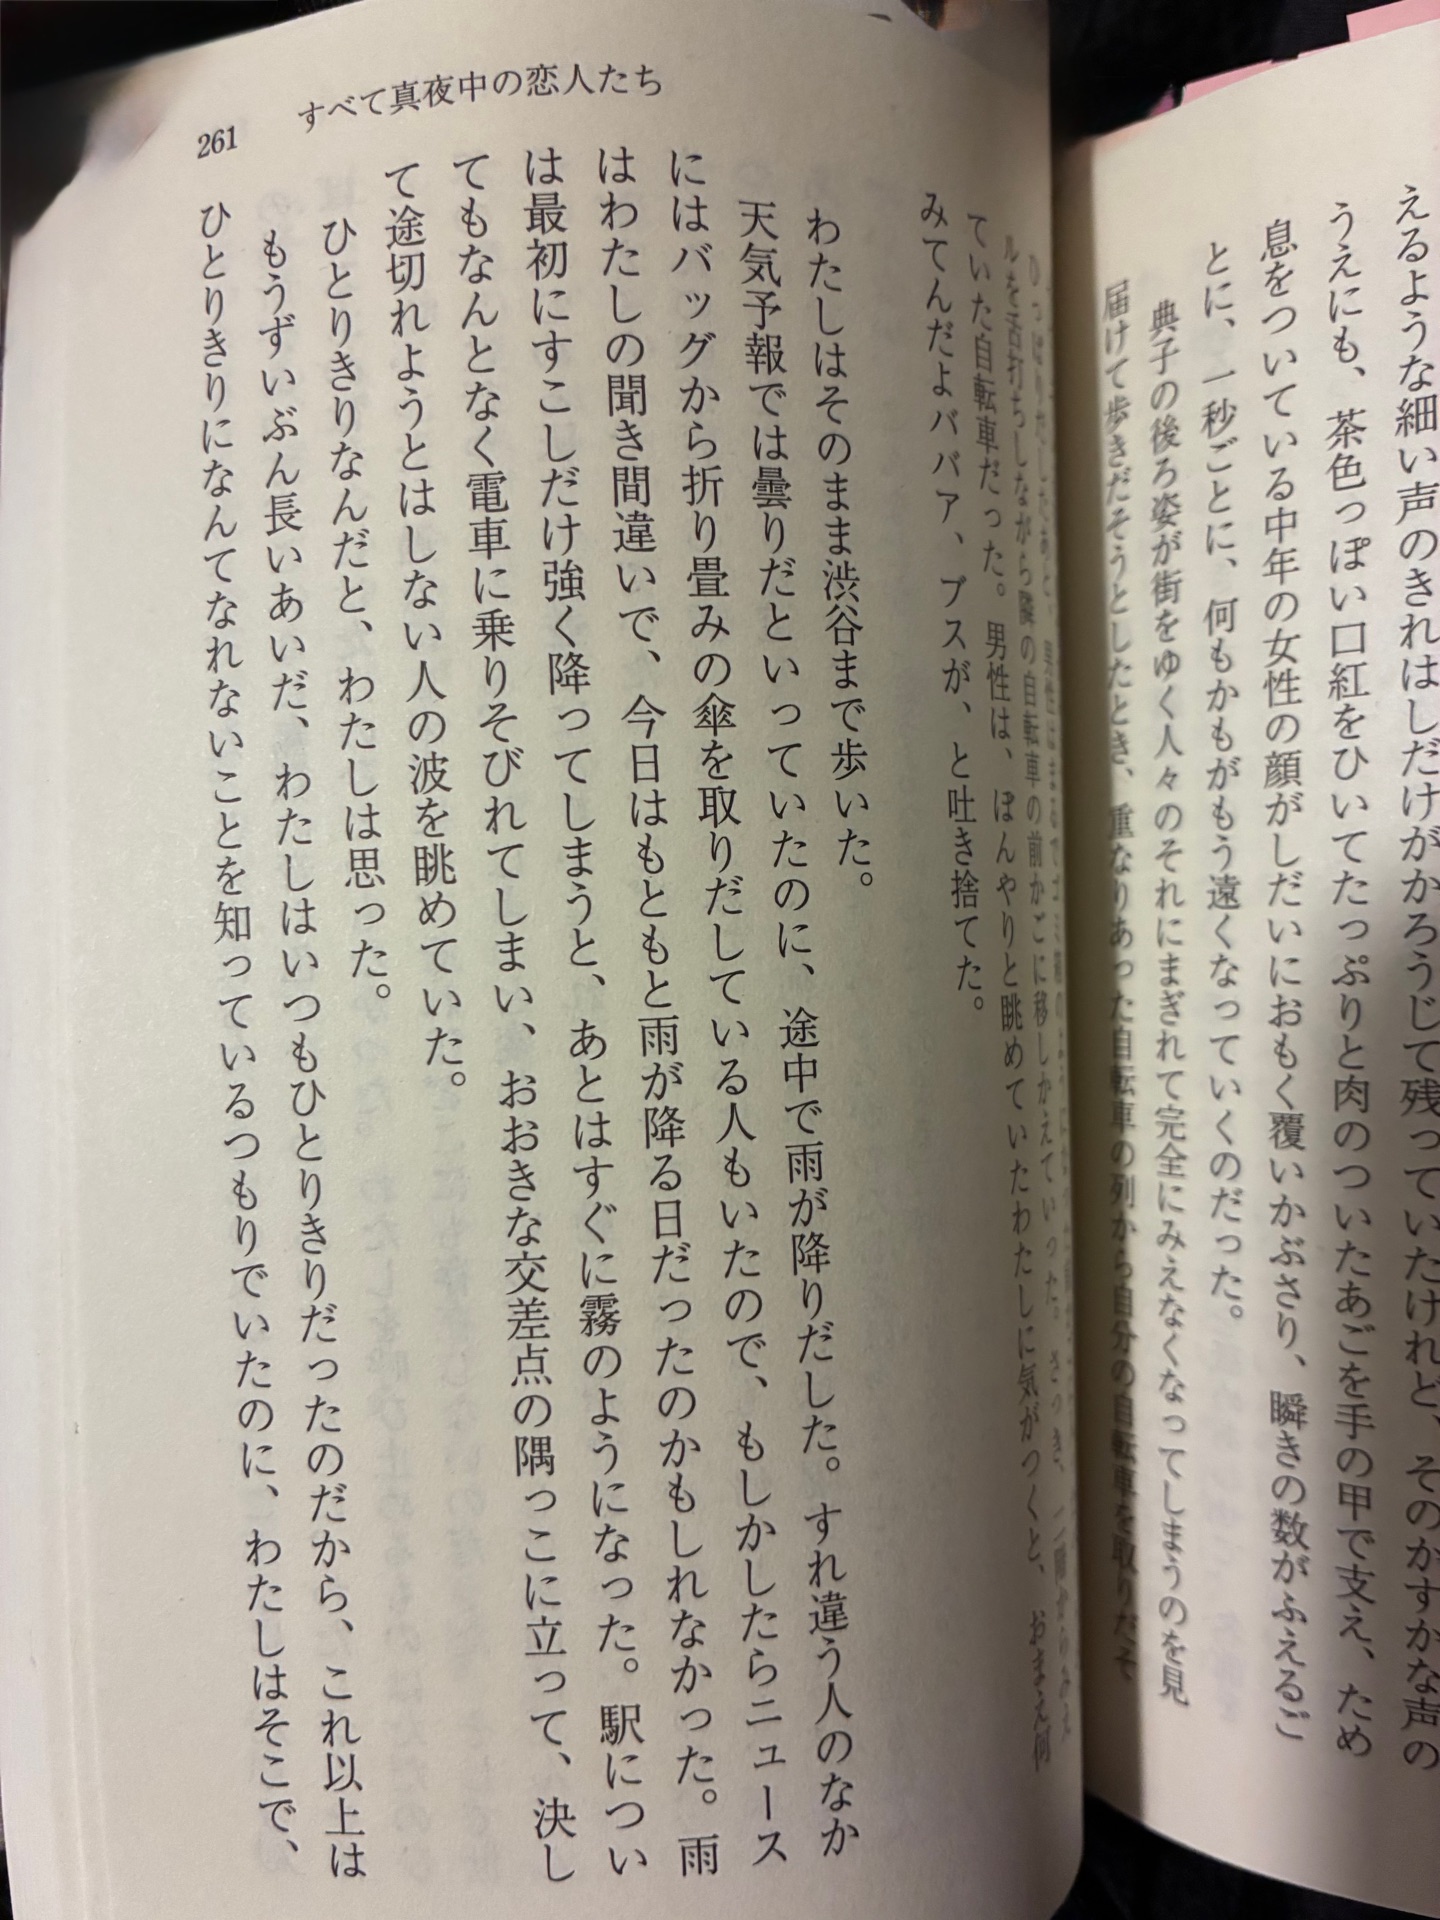 えるような細い声のきれはしだけがかろうじて残っていたけれど、そのかすかな声の
うえにも、茶色っぽい口紅をひいてたっぷりと肉のついたあごを手の甲で支え、ため
息をついている中年の女性の顔がしだいにおもく覆いかぶさり、瞬きの数がふえるご
とに、一秒ごとに、何もかもがもう遠くなっていくのだった。
典子の後ろ姿が街をゆく人々のそれにまぎれて完全にみえなくなってしまうのを見
届けて歩きだそうとしたとき、重なりあった自転車の列から自分の自転車を取りだそ
ひっぱりだしたあと、男性はまるでゴミ箱の
ルを舌打ちしながら隣の自転車の前かごに移しかえていった。さっき、二階からみえ
ていた自転車だった。男性は、ぼんやりと眺めていたわたしに気がつくと、おまえ何
みてんだよババア、ブスが、と吐き捨てた。
わたしはそのまま渋谷まで歩いた。
天気予報では曇りだといっていたのに、途中で雨が降りだした。すれ違う人のなか
にはバッグから折り畳みの傘を取りだしている人もいたので、もしかしたらニュース
はわたしの聞き間違いで、今日はもともと雨が降る日だったのかもしれなかった。雨
は最初にすこしだけ強く降ってしまうと、あとはすぐに霧のようになった。駅につい
てもなんとなく電車に乗りそびれてしまい、おおきな交差点の隅っこに立って、決し
て途切れようとはしない人の波を眺めていた。
ひとりきりなんだと、わたしは思った。
もうずいぶん長いあいだ、わたしはいつもひとりきりだったのだから、これ以上は
ひとりきりになんてなれないことを知っているつもりでいたのに、わたしはそこで、
261 すべて真夜中の恋人たち